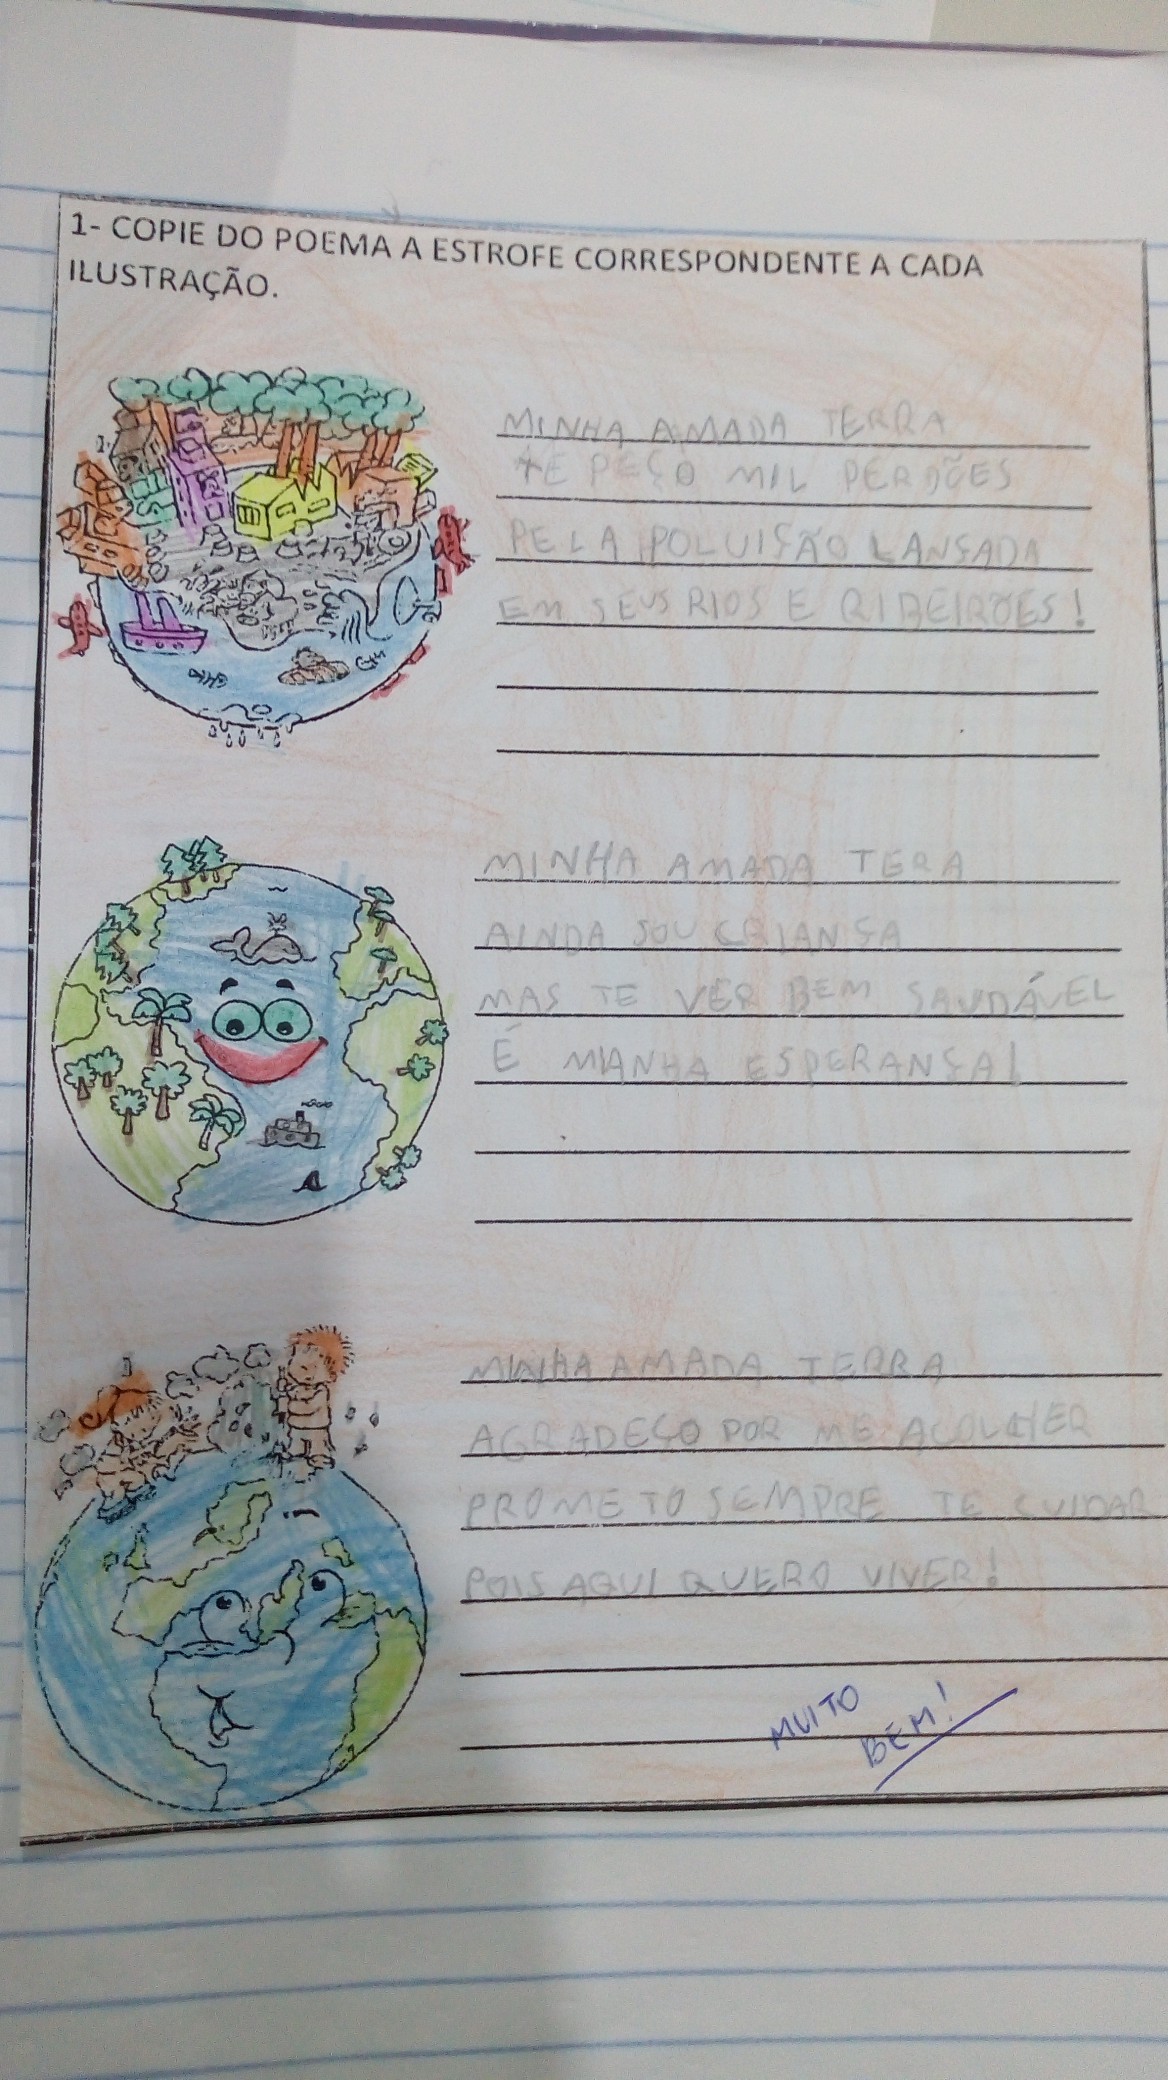 1- COPIE DO POEMA A ESTROFE CORRESPONDENTE A CADA
ILUSTRAÇÃO.
MINHA AMADA TERRA
TE PEÇO MIL PERDÕES
PELA POLUIÇÃO LANÇADA
EM SEUS RIOS E RIBEIRÕES!
MINHA AMADA TERA
AINDA SOU CRIANÇA
MAS TE VER BEM SAUDÁVEL
É MIANHA ESPERANÇA!
MINHA AMADA TERRA
AGRADEÇO POR ME ACOLHER
PROMETO SEMPRE TE CUIDAR
POIS AQUI QUERO VIVER!
MUITO
BEM!